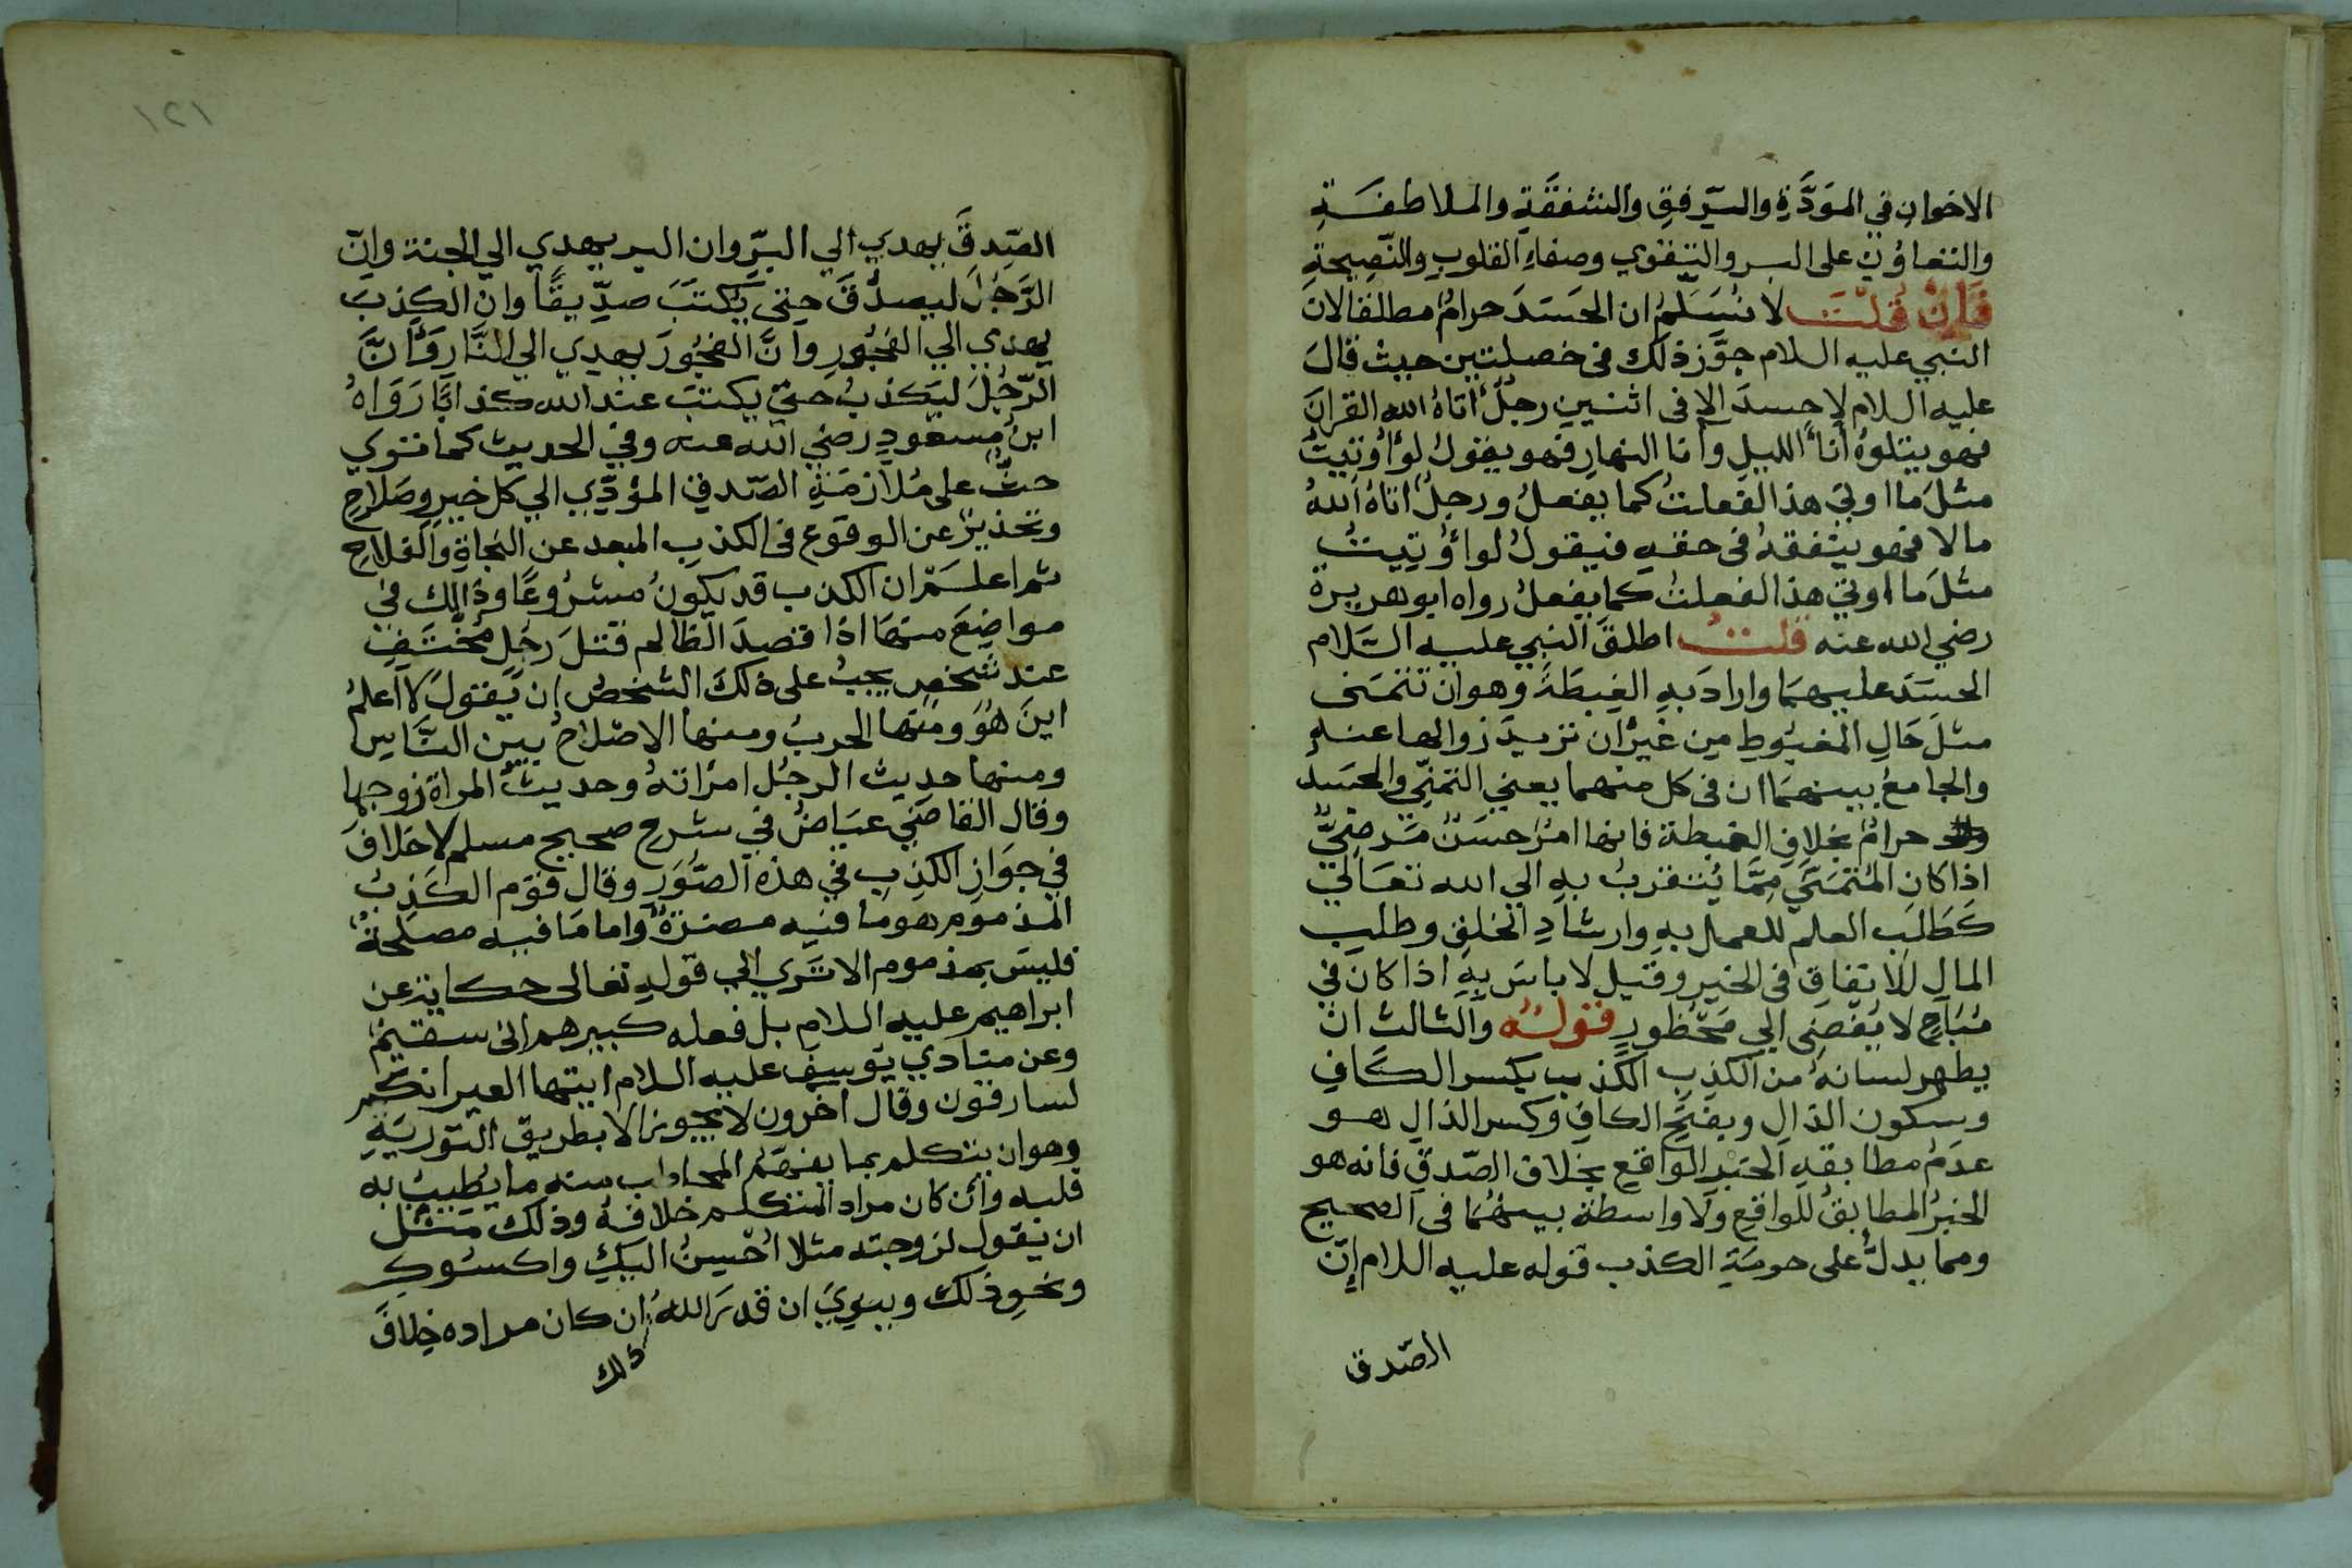 الاخوانِ في المَوَدَّةِ والرِّفقِ والشفقَةِ والملاطفَةِ
والتعاوُنِ على البر والتَّقوي وصفاءِ القلوبِ والنَّصِيحةِ
فَاِنْ قُلْتَ لا نُسَلِّمُ ان الحَسَدَ حرامٌ مطلقا لانَ
النبي عليه السلام جوَّز ذلك في خصلتين حيث قالَ
عليه السلام لا حسدَ الا في اثنين رجلٌ اتاهُ الله القرانَ
فهو يتلوهُ أناَءَ الليلِ وأنا النهارِ فهو يقولُ لو أُوتيتُ
مثلَ ما اوتيَ هذا لفعلتُ كما يفعلُ ورجلٌ اتاهُ اللهُ
مالا فهو ينفقهُ في حقهِ فيقولُ لو أُوتيتُ
مثلَ ما اوتيَ هذا لفعلتُ كما يفعلُ رواه ابو هريرة
رضي الله عنه قلتُ اطلقَ النبي عليه السَّلام
الحسَدَ عليهمَا وارادَ بهِ الغِبطَةَ وهو ان تتمَنى
مثلَ حَالِ المغبُوطِ مِن غَيرِ ان تريدَ زوالها عنهُ
والجامعُ بينهمَا ان في كل منهما يعني التمنّي والحسَد
حرامٌ بخلافِ الغبطة فانها امرٌ حسَنٌ مَرضيٌّ
اذا كان المُتمَنَّي مِمَّا يُتقربُ بهِ الي الله تعَالَي
كَطَالبِ العلم للعملِ بهِ وارشادِ الخلقِ وطلبِ
المالِ للانفاقِ في الخيرِ وقيل لا باسَ بهِ اذا كان في
مُبَاحٍ لا يُفضِى الي مَحْظورٍ قولُهُ والثالث ان
يطهر لسانَهُ من الكذبِ الكَذب بكسر الكَافِ
وسكون الذالِ وبفتحِ الكافِ وكسر الذالِ هو
عدَمُ مطابقةِ الخبرِ الواقعِ بخلاف الصِّدقِ فانه هو
الخبرُ المطابقُ للواقعِ ولا واسطةَ بينهُمَا في الصحيح
ومما يدلُّ على حرمَةِ الكذب قوله عليه السلام إِنَّ
الصّدق
١٢١
الصِّدقَ يهدي الي البِرِّ وان البر يهدي الي الجنة وانّ
الرَّجُلَ ليصدُقَ حتى يُكتبَ صدِّيقًا وان الكِذبَ
يهدي الي الفجُورِ وَانَّ الفجُورَ يهدي الي النَّارِ وَاَنَّ
الرّجُلَ ليَكذبُ حتيّ يكتبَ عندَ الله كذابًا رَوَاهُ
ابنُ مسعودٍ رضي الله عنه وفي الحديث كما تري
حثٌّ على مُلازمَةِ الصّدقِ المؤدِّي الي كل خيرٍ وصَلاحٍ
وتحذيرٌ عن الوقوع في الكذبِ المبعد عن النجاةِ والفلاحِ
ثم اعلَمْ ان الكذب قد يكونُ مشرُوعًا وذالِكَ في
مواضِعَ منهَا اذا قصدَ الظالم قتلَ رجُلٍ مُختَفٍ
عند شخصٍ يجبُ على ذلكَ الشخصُ ان يَقولَ لا اعلمُ
اينَ هُوَ ومنها الحربُ ومنها الاصْلاحُ بين النَّاسِ
ومنها حديث الرجُل امرَاتهُ وحديثُ المراة زوجها
وقال القاضي عيَاضٌ في شرح صحيح مسلم لا خلافَ
في جوَازِ الكذِبِ في هذه الصُّوَرِ وقال قوم الكَذِبُ
المذموم هو ما فيه مضرةٌ واما مَا فيه مصلحةٌ
فليسَ بمذموم الا تَري الي قولهِ تعالى حكاية عن
ابراهيم عليه السلامِ بل فعله كبيرهم اني سقيمٌ
وعن منادي يُوسف عليه السلام ايتها العير انكم
لسارقون وقال آخرون لا يجوز الا بطريق التوريَةِ
وهو ان يتكلم بما يفهمُ المخاطب منه ما يُطيبُ بهِ
قلبه وان كان مراد المتكلم خلافهُ وذلك مثل
ان يقولَ لزوجتهِ مثلا أُحْسِنُ اليكِ واكسُوكِ
ونحوِ ذلك وينوِيَ ان قدرَ اللهُ ان كان مراده خِلافَ
ذلك